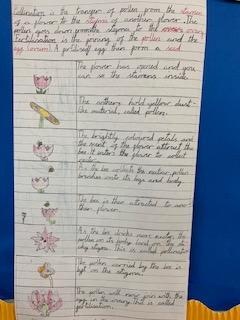 Pollination is the transfer of pollen from the stamen
of a flower to the stigma of another flower. The
pollen goes down from the stigma to the ovary.
Fertilisation is the joining of the pollen and the
egg (ovum). A fertilised egg then form a seed.
The flower has opened and you
can see the stamens inside.
The anthers hold yellow dust-
like material, called pollen.
The brightly coloured petals and
the scent of the flower attract the
bee. It enters the flower to collect
nectar.
As the bee collects the nectar, pollen
brushes onto its legs and body.
The bee is then attracted to ano-
ther flower.
As the bee drinks more nectar the
pollen on its body land on the sti-
cky stigma. This is called pollination.
The pollen carried by the bee is
left on the stigma.
The pollen will now join with the
egg in the ovary. This is called
fertilisation.